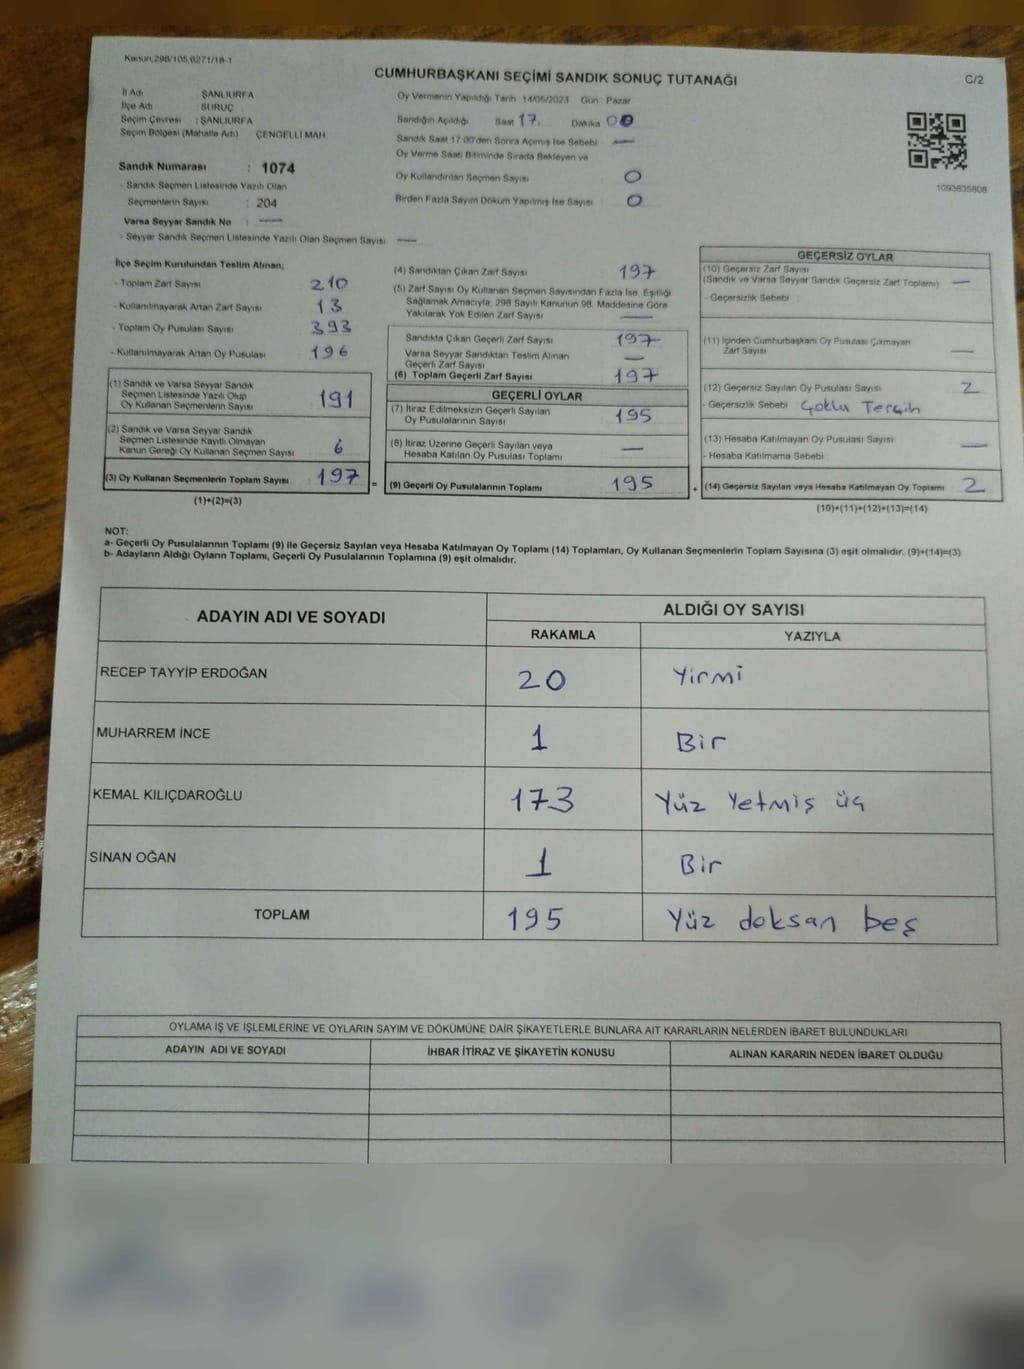 Kanun 298/105,6271/18-1
CUMHURBAŞKANI SEÇİMİ SANDIK SONUÇ TUTANAĞI
C/2
İl Adı ŞANLIURFA
İlçe Adı SURUÇ
Seçim Çevresi : ŞANLIURFA
Seçim Bölgesi (Mahalle Adı) ÇENGELLİ MAH
Oy Vermenin Yapıldığı Tarih 14/05/2023 Gün Pazar
Sandığın Açıldığı Saat 17. Dakika 00
Sandık Saat 17:00'den Sonra Açımış İse Sebebi —
Oy Verme Saati Bitiminde Sırada Bekleyen ve
Oy Kullandırılan Seçmen Sayısı 0
Birden Fazla Sayım Döküm Yapılmış İse Sayısı 0
1093635808
Sandık Numarası : 1074
- Sandık Seçmen Listesinde Yazılı Olan
Seçmenlerin Sayısı : 204
Varsa Seyyar Sandık No : —
- Seyyar Sandık Seçmen Listesinde Yazılı Olan Seçmen Sayısı —
İlçe Seçim Kurulundan Teslim Alınan;
- Toplam Zarf Sayısı 210
- Kullanılmayarak Artan Zarf Sayısı 13
- Toplam Oy Pusulası Sayısı 393
- Kullanılmayarak Artan Oy Pusulası 196
(1) Sandık ve Varsa Seyyar Sandık
Seçmen Listesinde Yazılı Olup
Oy Kullanan Seçmenlerin Sayısı 191
(2) Sandık ve Varsa Seyyar Sandık
Seçmen Listesinde Kayıtlı Olmayan
Kanun Gereği Oy Kullanan Seçmen Sayısı 6
(3) Oy Kullanan Seçmenlerin Toplam Sayısı 197 =
(1)+(2)=(3)
(4) Sandıktan Çıkan Zarf Sayısı 197
(5) Zarf Sayısı Oy Kullanan Seçmen Sayısından Fazla İse, Eşitliği
Sağlamak Amacıyla, 298 Sayılı Kanunun 98. Maddesine Göre
Yakılarak Yok Edilen Zarf Sayısı —
Sandıkta Çıkan Geçerli Zarf Sayısı 197
Varsa Seyyar Sandıktan Teslim Alınan
Geçerli Zarf Sayısı —
(6) Toplam Geçerli Zarf Sayısı 197
GEÇERLİ OYLAR
(7) İtiraz Edilmeksizin Geçerli Sayılan
Oy Pusulalarının Sayısı 195
(8) İtiraz Üzerine Geçerli Sayılan veya
Hesaba Katılan Oy Pusulası Toplamı —
(9) Geçerli Oy Pusulalarının Toplamı 195 +
GEÇERSİZ OYLAR
(10) Geçersiz Zarf Sayısı
(Sandık ve Varsa Seyyar Sandık Geçersiz Zarf Toplamı) —
- Geçersizlik Sebebi :
(11) İçinden Cumhurbaşkanı Oy Pusulası Çıkmayan
Zarf Sayısı —
(12) Geçersiz Sayılan Oy Pusulası Sayısı 2
- Geçersizlik Sebebi Çoklu Tercih
(13) Hesaba Katılmayan Oy Pusulası Sayısı —
- Hesaba Katılmama Sebebi
(14) Geçersiz Sayılan veya Hesaba Katılmayan Oy Toplamı 2
(10)+(11)+(12)+(13)=(14)
NOT:
a- Geçerli Oy Pusulalarının Toplamı (9) ile Geçersiz Sayılan veya Hesaba Katılmayan Oy Toplamı (14) Toplamları, Oy Kullanan Seçmenlerin Toplam Sayısına (3) eşit olmalıdır. (9)+(14)=(3)
b- Adayların Aldığı Oyların Toplamı, Geçerli Oy Pusulalarının Toplamına (9) eşit olmalıdır.
ADAYIN ADI VE SOYADI
ALDIĞI OY SAYISI
RAKAMLA YAZIYLA
RECEP TAYYİP ERDOĞAN 20 Yirmi
MUHARREM İNCE 1 Bir
KEMAL KILIÇDAROĞLU 173 Yüz Yetmiş üç
SİNAN OĞAN 1 Bir
TOPLAM 195 Yüz doksan beş
OYLAMA İŞ VE İŞLEMLERİNE VE OYLARIN SAYIM VE DÖKÜMÜNE DAİR ŞİKAYETLERLE BUNLARA AİT KARARLARIN NELERDEN İBARET BULUNDUKLARI
ADAYIN ADI VE SOYADI İHBAR İTİRAZ VE ŞİKAYETİN KONUSU ALINAN KARARIN NEDEN İBARET OLDUĞU